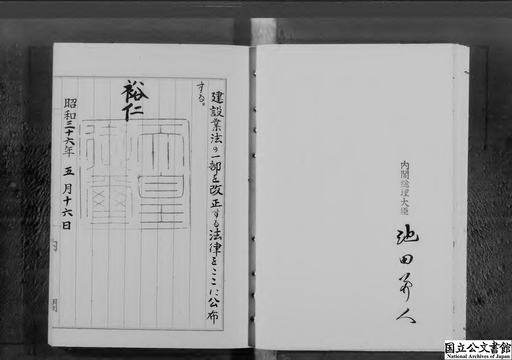 建設業法の一部を改正する法律をここに公布
する。
裕仁
天皇
御璽
昭和三十六年 五月十六日
内閣
内閣総理大臣
池田勇人
国立公文書館
National Archives of Japan